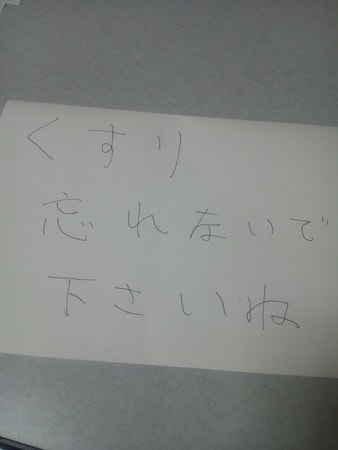 くすり
忘れないで
下さいね